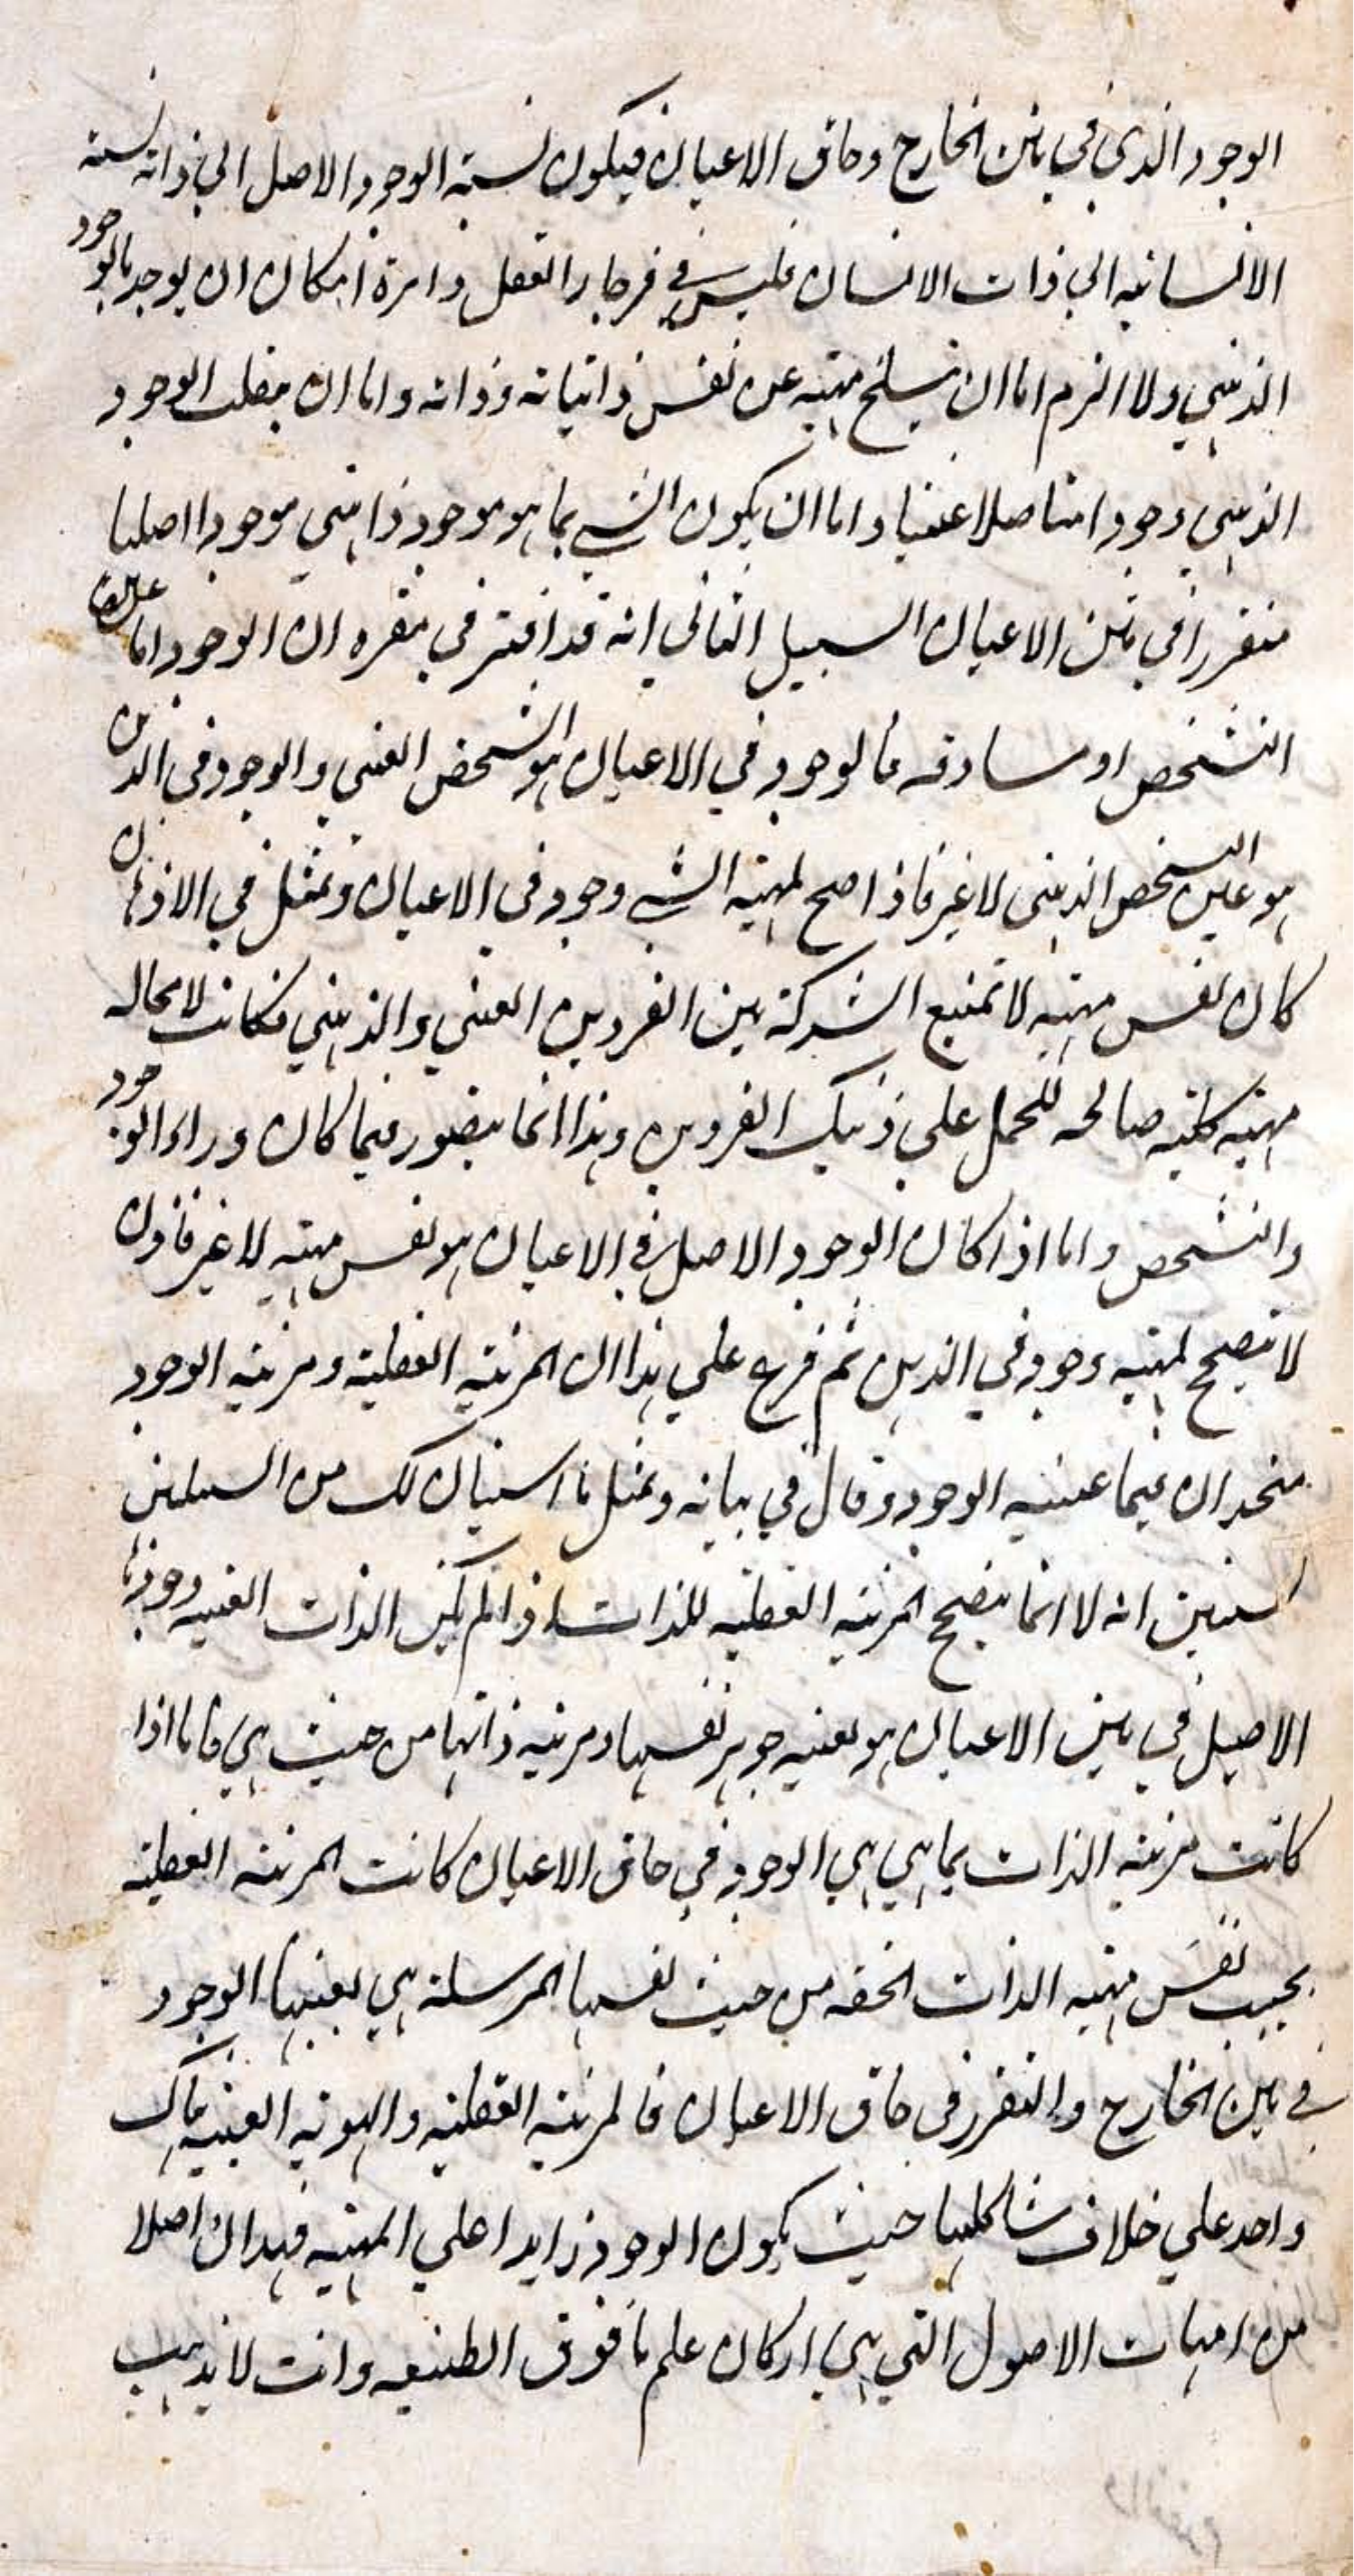 الوجود الذي في متن الخارج وحاق الاعيان فيكون نسبة الوجود الاصل الي ذاته نسبة
الانسانيه الي ذات الانسان فليس في فرجار العقل دايرة امكان ان يوجد بالوجود
الذهني ولا الزم اما ان ينسلخ مهيته عن نفس ذاتياته وذاته واما ان ينقلب الوجود
الذهني وجودا متاصلا عينيا واما ان يكون الشي بما هو موجود ذهني موجودا اصليا
متقررا في متن الاعيان السبيل الثاني انه قد اقتر في مقره ان الوجود اما عين
التشخص او مساوقه فالوجود في الاعيان هو التشخص العيني والوجود في الذهن
هو عين التشخص الذهني لا غير فاذا صح لمهية الشي وجود في الاعيان وتمثل في الاذهان
كان نفس مهيته لا تمنع الشركة بين الفردين العيني والذهني فكانت لا محاله
مهيته كليه صالحه للحمل علي ذينك الفردين وهذا انما يتصور فيما كان وراء الوجود
والتشخص واما اذا كان الوجود الاصل في الاعيان هو نفس مهيته لا غير فاذن
لا يصح لمهيته وجود في الذهن ثم فرع علي هذا ان المرتبة العقلية ومرتبة الوجود
متحدان فيما عينيه الوجود وقال في بيانه وتمثل ما استبان لك من السبيلين
استبين انه لا انما يتصح المرتبه العقليه للذات اذا لم يكن الذات العينيه وجودها
الاصيل في متن الاعيان هو بعينه جوهر نفسها ومرتبه ذاتها من حيث هي فاما اذا
كانت مرتبه الذات بما هي هي الوجود في حاق الاعيان كانت المرتبه العقليه
بحسب نفس مهيه الذات الحقه من حيث نفسها المرسلة هي بعينها الوجود
في متن الخارج والتقرر في حاق الاعيان فالمرتبه العقليه والهويه العينيه هناك
واحد علي خلاف شاكلتها حيث يكون الوجود زايدا علي المهيه فهذا ان اصلا
من امهات الاصول التي هي اركان علم ما فوق الطبيعه وانت لا يذهب